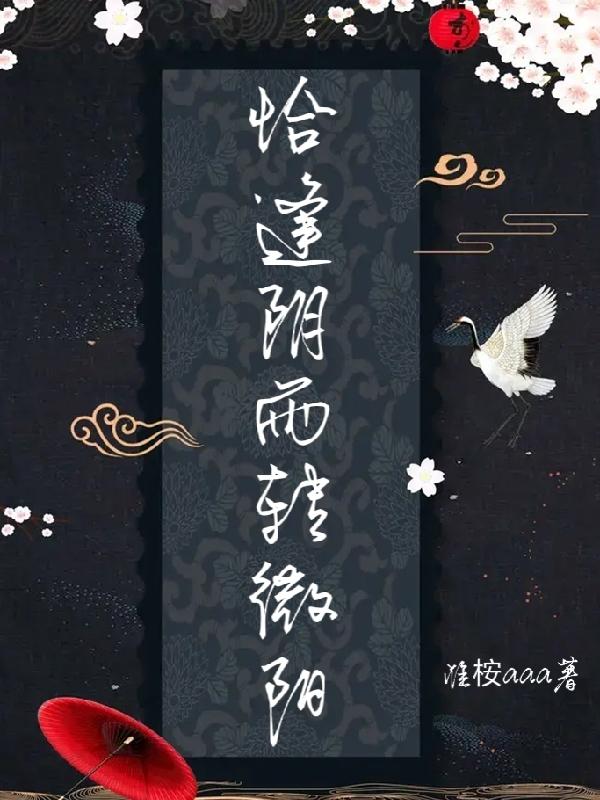 恰逢阴雨转微阳
淮桉aaa著